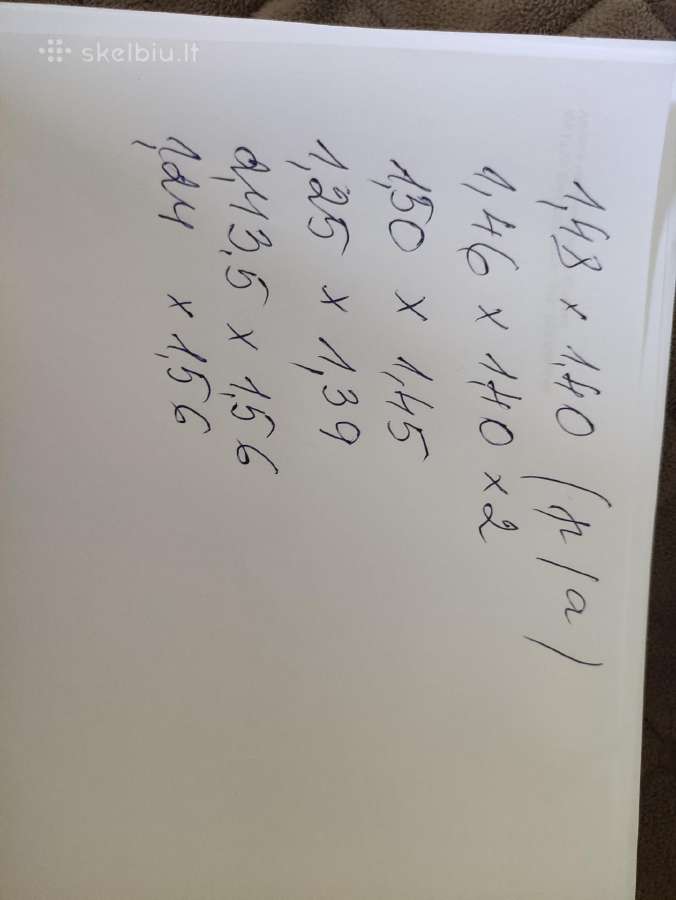 skelbiu.lt
1,48 x 1,40 (p/a)
1,46 x 1,40 x 2
1,50 x 1,45
1,25 x 1,39
2,43,5 x 1,56
1,24 x 1,56